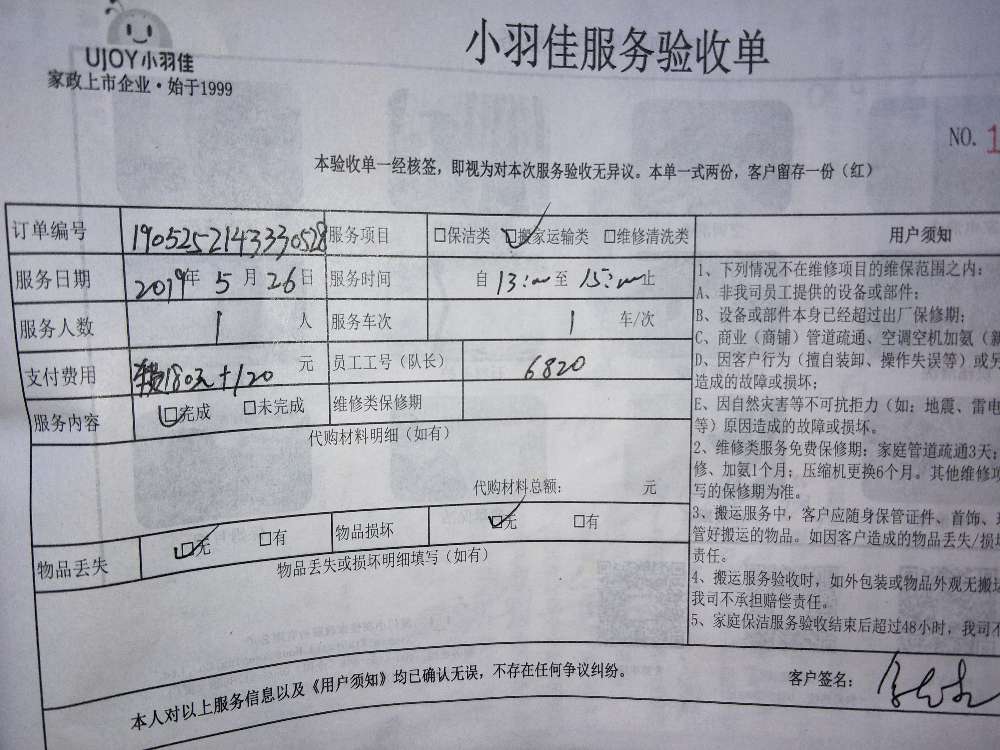 UJOY小羽佳
家政上市企业·始于1999
小羽佳服务验收单
NO. 1
本验收单一经核签，即视为对本次服务验收无异议。本单一式两份，客户留存一份（红）
订单编号 190525214333 0528 服务项目 □保洁类 □搬家运输类 □维修清洗类
服务日期 2019年 5月 26日 服务时间 自 13: 至 15: 止
服务人数 1 人 服务车次 1 车/次
支付费用 180元+120 元 员工工号（队长） 6820
服务内容 □完成 □未完成 维修类保修期
代购材料明细（如有）
代购材料总额： 元
物品丢失 □无 □有 物品损坏 □无 □有
物品丢失或损坏明细填写（如有）
用户须知
1、下列情况不在维修项目的维保范围之内：
A、非我司员工提供的设备或部件；
B、设备或部件本身已经超过出厂保修期；
C、商业（商铺）管道疏通、空调空机加氨（新
D、因客户行为（擅自装卸、操作失误等）或另
造成的故障或损坏；
E、因自然灾害等不可抗拒力（如：地震、雷电
等）原因造成的故障或损坏。
2、维修类服务免费保修期：家庭管道疏通3天；
修、加氨1个月；压缩机更换6个月。其他维修项
写的保修期为准。
3、搬运服务中，客户应随身保管证件、首饰、
管好搬运的物品。如因客户造成的物品丢失/损坏
责任。
4、搬运服务验收时，如外包装或物品外观无搬
我司不承担赔偿责任。
5、家庭保洁服务验收结束后超过48小时，我司不
本人对以上服务信息以及《用户须知》均已确认无误，不存在任何争议纠纷。
客户签名：